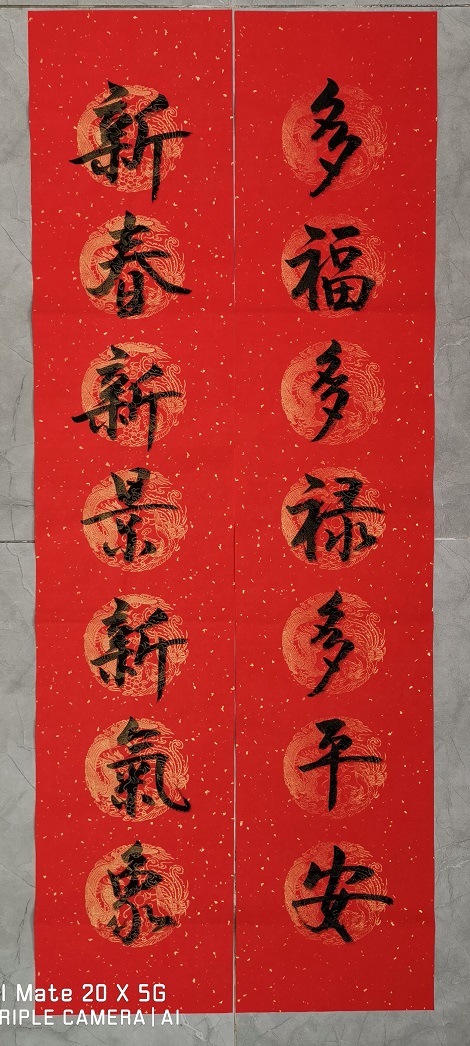 多福多禄多平安
新春新景新氣象
l Mate 20 X 5G
RIPLE CAMERA | AI